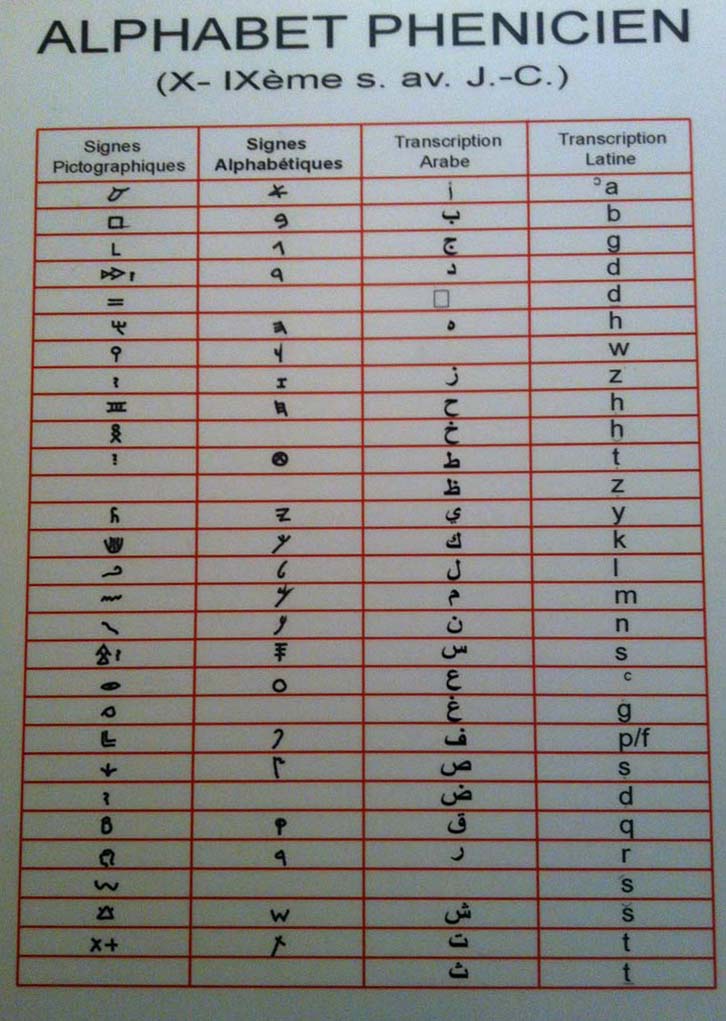 ALPHABET PHENICIEN
(X- IXème s. av. J.-C.)
Signes Pictographiques Signes Alphabétiques Transcription Arabe Transcription Latine
𐤀 أ ᵓa
𐤁 ب b
𐤂 ج g
𐤃 د d
d
𐤄 ه h
𐤅 w
𐤆 ز z
𐤇 ح h
خ ḫ
𐤈 ط ṭ
ظ ẓ
𐤉 ي y
𐤊 ك k
𐤋 ل l
𐤌 م m
𐤍 ن n
𐤎 س s
𐤏 ع ᶜ
غ g
𐤐 ف p/f
𐤑 ص ṣ
ض d
𐤒 ق q
𐤓 ر r
ś
𐤔 ش š
𐤕 ت t
ث ṯ